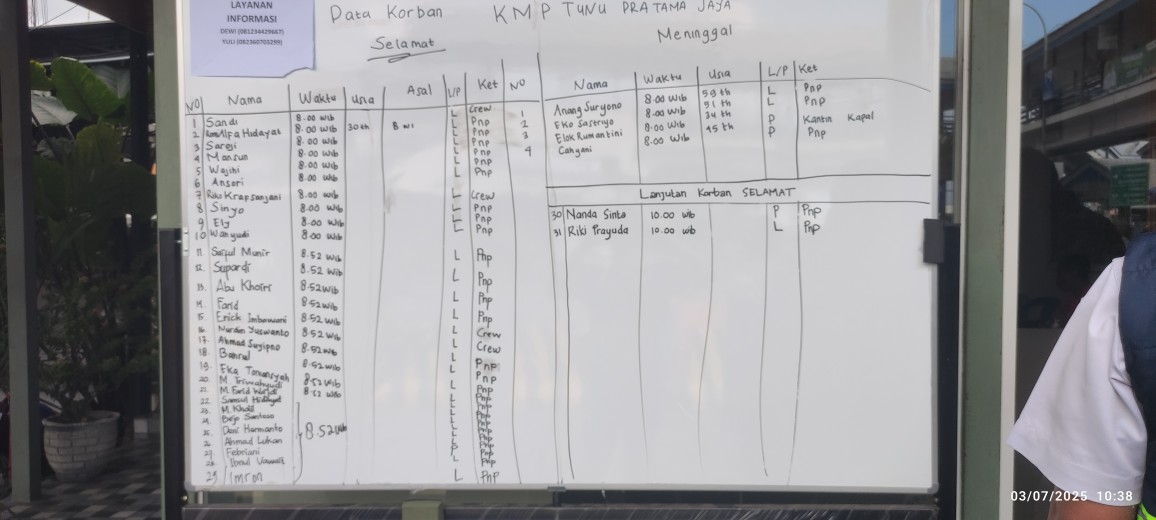 LAYANAN
INFORMASI
DEWI (081234429667)
YULI (082360703299)
Data Korban KMP TUNU PRATAMA JAYA
Selamat
NO Nama Waktu Usia Asal L/P Ket
1 Sandi 8.00 wib L Crew
2 Romi Alfa Hidayat 8.00 wib 30 th L Pnp
3 Saroji 8.00 wib L Pnp
4 Mansun 8.00 wib L Pnp
5 Wajihi 8.00 wib L Pnp
6 Ansori 8.00 wib L Pnp
7 Riko Krapsanjani 8.00 wib L Crew
8 Sinyo 8.00 wib L Pnp
9 Ely 8.00 wib L Pnp
10 Wahyudi 8.00 wib L Pnp
11. Saiful Munir 8.52 wib L Pnp
12. Supardi 8.52 wib L Pnp
13. Abu Khoiri 8.52 wib L Pnp
14. Farid 8.52 wib L Pnp
15. Erick Imbawani 8.52 wib L Crew
16. Nurdin Yuswanto 8.52 wib L Crew
17. Ahmad Sugipno 8.52 wib L Pnp
18. Bahrul 8.52 wib L Pnp
19. Eka 8.52 wib L Pnp
20. M. 8.52 wib L Pnp
21. M. Farid L Pnp
22. Samsul Hidayat L Pnp
23. M. Kholil L Pnp
24. Bejo Santoso L Pnp
25. Deni Hermanto 8.52 wib L Pnp
26. Ahmad Lukan L Pnp
27. Febriani P Pnp
28. L Pnp
29 Imron L Pnp
Meninggal
NO Nama Waktu Usia L/P Ket
1 Anang Suryono 8.00 wib 59 th L Pnp
2 Eko Sastriyo 8.00 wib 51 th L Pnp
3 Elok Rumantini 8.00 wib 34 th P Kantin Kapal
4 Cahyani 8.00 wib 45 th P Pnp
Lanjutan Korban SELAMAT
30 Nanda Sinta 10.00 wib P Pnp
31 Riki Prayuda 10.00 wib L Pnp
03/07/2025 10:38